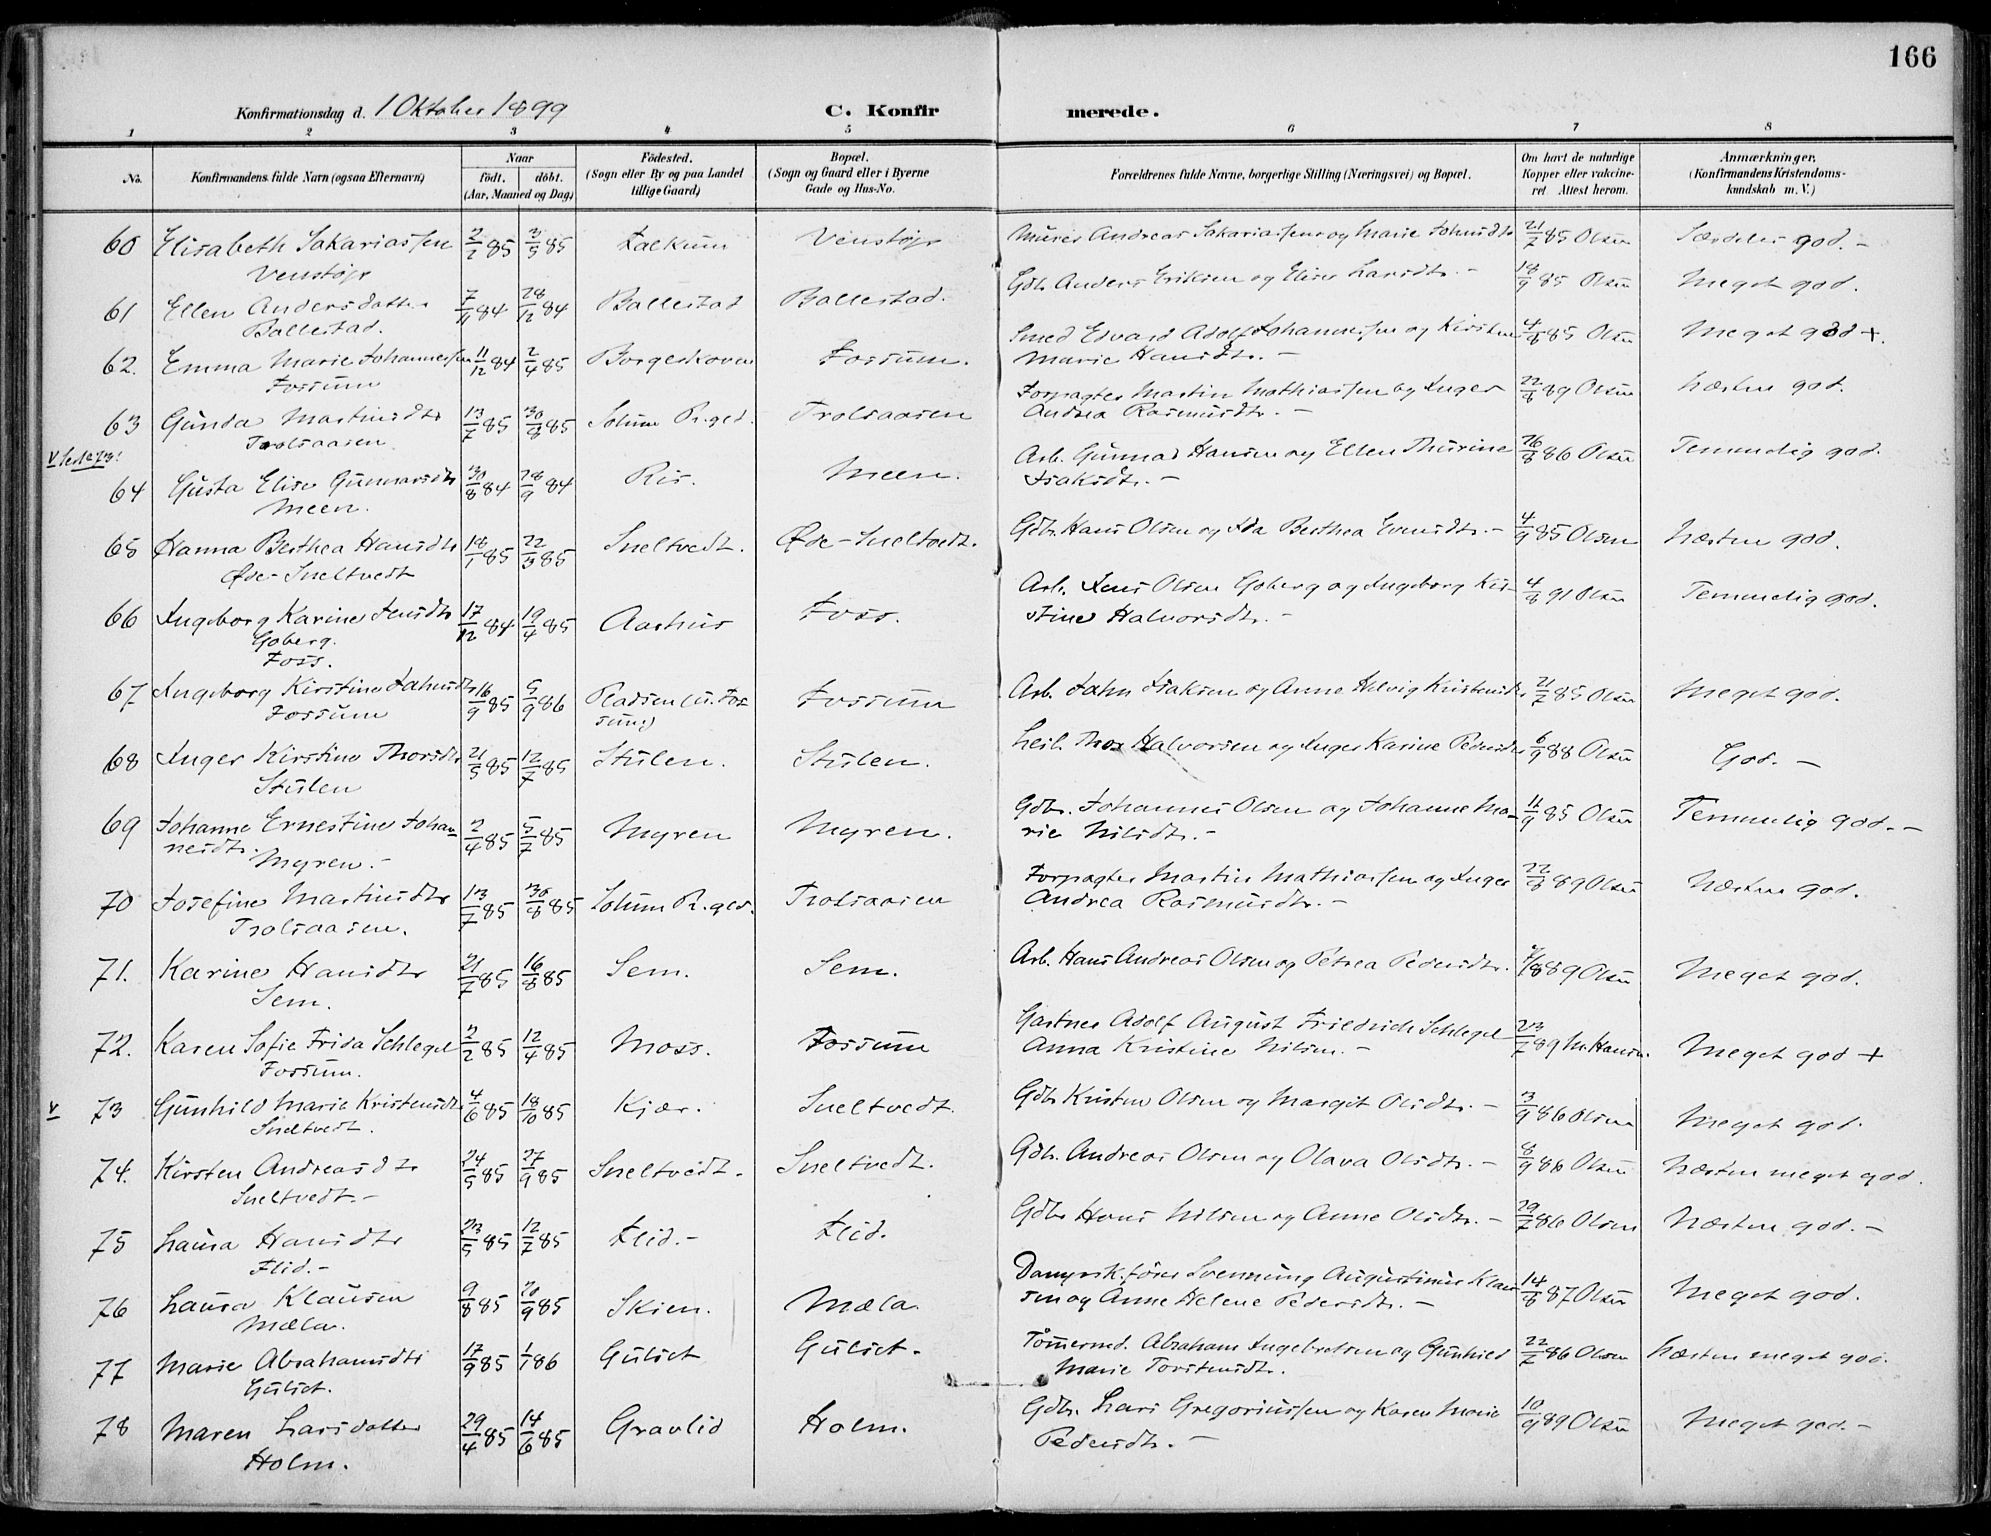 166
Konfirmationsdag d. 1 Oktober 1899
C. Konfirmerede.
1 2 3 4 5 6 7 8
No.
Konfirmandens fulde Navn (ogsaa Efternavn)
Naar
født. døbt.
(Aar, Maaned og Dag)
Födested.
(Sogn eller By og paa Landet
tillige Gaard)
Bopæl.
(Sogn og Gaard eller i Byerne
Gade og Hus-No.
Forældrenes fulde Navne, borgerlige Stilling (Næringsvei) og Bopæl.
Om havt de naturlige
Kopper eller vakcine-
ret. Attest herom.
Anmærkninger,
(Konfirmandens Kristendoms-
kundskab m. V.)
60 Elisabeth Sakariassen 2/2 85 3/5 85 Falkum Venstøp Murer Andreas Sakariassen og Marie Johnsdtr 21/7 85 Olsen Særdeles god. -
Venstøp
61 Ellen Andersdatter 7/11 84 28/12 84 Ballestad Ballestad. Gbr. Anders Eriksen og Elise Larsdtr. - 18/9 85 Olsen Meget god.
Ballestad.
62. Emma Marie Johannessen 11/12 84 2/4 85 Borgeskoven Fossum. Smed Edvard Adolf Johannessen og Kirsten 4/8 85 Olsen Meget god +.
Fossum Marie Hansdtr. -
63 Gunda Martinsdtr 13/7 85 30/8 85 Solum Pr.gd. Trolsaasen Forpagter Martin Mathiassen og Inger 22/8 89 Olsen Næsten god.
Trolsaasen Andrea Rasmusdtr. -
64 Gusta Elise Gunnarsdtr 30/8 84 28/9 84 Ris. Meen. Arb. Gunnar Hansen og Ellen Thurine 26/8 86 Olsen Temmelig god.
Meen. Isaksdtr. -
65 Hanna Berthea Hansdtr 18/1 85 22/3 85 Sneltvedt. Øde-Sneltvedt. Gdbr. Hans Olsen og Ida Berthea Evensdtr. - 4/9 85 Olsen Næsten god.
Øde-Sneltvedt
66 Ingeborg Karine Jensdtr 17/12 84 19/4 85 Aarhus Foss. Arb. Jens Olsen Goberg og Ingeborg Kir- 4/8 91 Olsen Temmelig god.
Goberg. stine Halvorsdtr. -
Foss.
67 Ingeborg Kirstine Jahnsdtr 16/9 85 5/9 86 Pladsen (u. Fos- Fossum Arb. Jahn Isaksen og Anne Helvig Kristensdtr 21/7 85 Olsen Meget god.
Fossum sum)
68 Inger Kirstine Thorsdtr 21/5 85 12/7 85 Stulen. Stulen. Leil. Thor Halvorsen og Inger Karine Pedersdtr 6/9 88 Olsen God. -
Stulen
69 Johanne Ernestine Johan- 2/4 85 5/7 85 Myren Myren. Gdbr. Johannes Olsen og Johanne Ma- 11/9 85 Olsen Temmelig god. -
nesdtr. rie Nilsdtr. -
Myren. -
70 Josefine Martinsdtr 13/7 85 30/8 85 Solum Pr.gd. Trolsaasen Forpagter Martin Mathiassen og Inger 22/8 89 Olsen Næsten god.
Trolsaasen. Andrea Rasmusdtr. -
71. Karine Hansdtr 21/7 85 16/8 85 Sem. Sem. Arb. Hans Andreas Olsen og Petrea Pedersdtr. 89 Olsen Meget god.
Sem.
72. Karen Sofie Frida Schlegel 2/2 85 12/4 85 Moss. Fossum Gartner Adolf August Friedrich Schlegel 23/7 89 M. Hansen. Meget god +
Fossum. Anna Kristine Nilsen. -
v 73 Gunhild Marie Kristensdtr 4/6 85 18/10 85 Kjær. Sneltvedt. Gdbr Kristen Olsen og Margit Olsdtr. - 3/9 86 Olsen Meget god.
Sneltvedt.
74. Kirsten Andreasdtr 24/5 85 27/9 85 Sneltvedt. Sneltvedt. Gdbr. Andreas Olsen og Olava Olsdtr. - 8/9 86 Olsen Næsten meget god.
Sneltvedt. -
75 Laura Hansdtr 23/5 85 12/7 85 Flid. - Flid. Gdbr Hans Nilsen og Anne Olsdtr. - 29/7 86 Olsen Næsten god. -
Flid. -
76 Laura Klausen 9/8 85 20/9 85 Skien. Mæla. Dampsk.fører Svennung Augustinus Klau- 14/8 87 Olsen Meget god.
Mæla. sen og Anne Helene Pedersdtr. -
77 Marie Abrahamsdtr 17/9 85 1/1 86 Gulset Gulset. Tømmermd. Abraham Ingebretsen og Gunhild 22/7 86 Olsen Næsten meget god.
Gulset. Marie Torstensdtr.
78 Maren Larsdatter 29/4 85 14/6 85 Gravlid Holm. Gdbr. Lars Gregoriussen og Karen Marie 10/9 89 Olsen Meget god. -
Holm. Pedersdtr. -